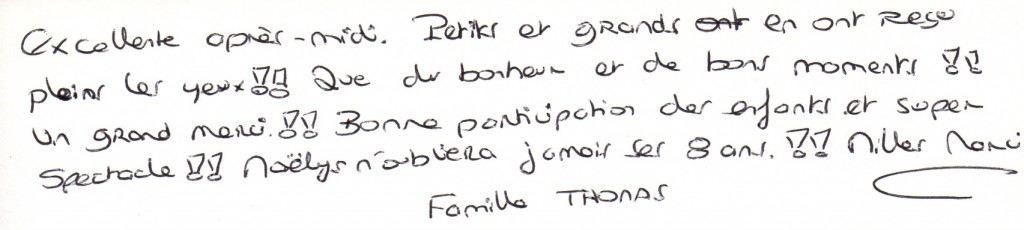 Excellente après-midi. Petits et grands ont en ont reçu
pleins les yeux !!! Que du bonheur et de bons moments !!
Un grand merci. !! Bonne participation des enfants et super
spectacle !! Naëlys n'oubliera jamais ses 8 ans. !! Milles Merci
Famille THOMAS